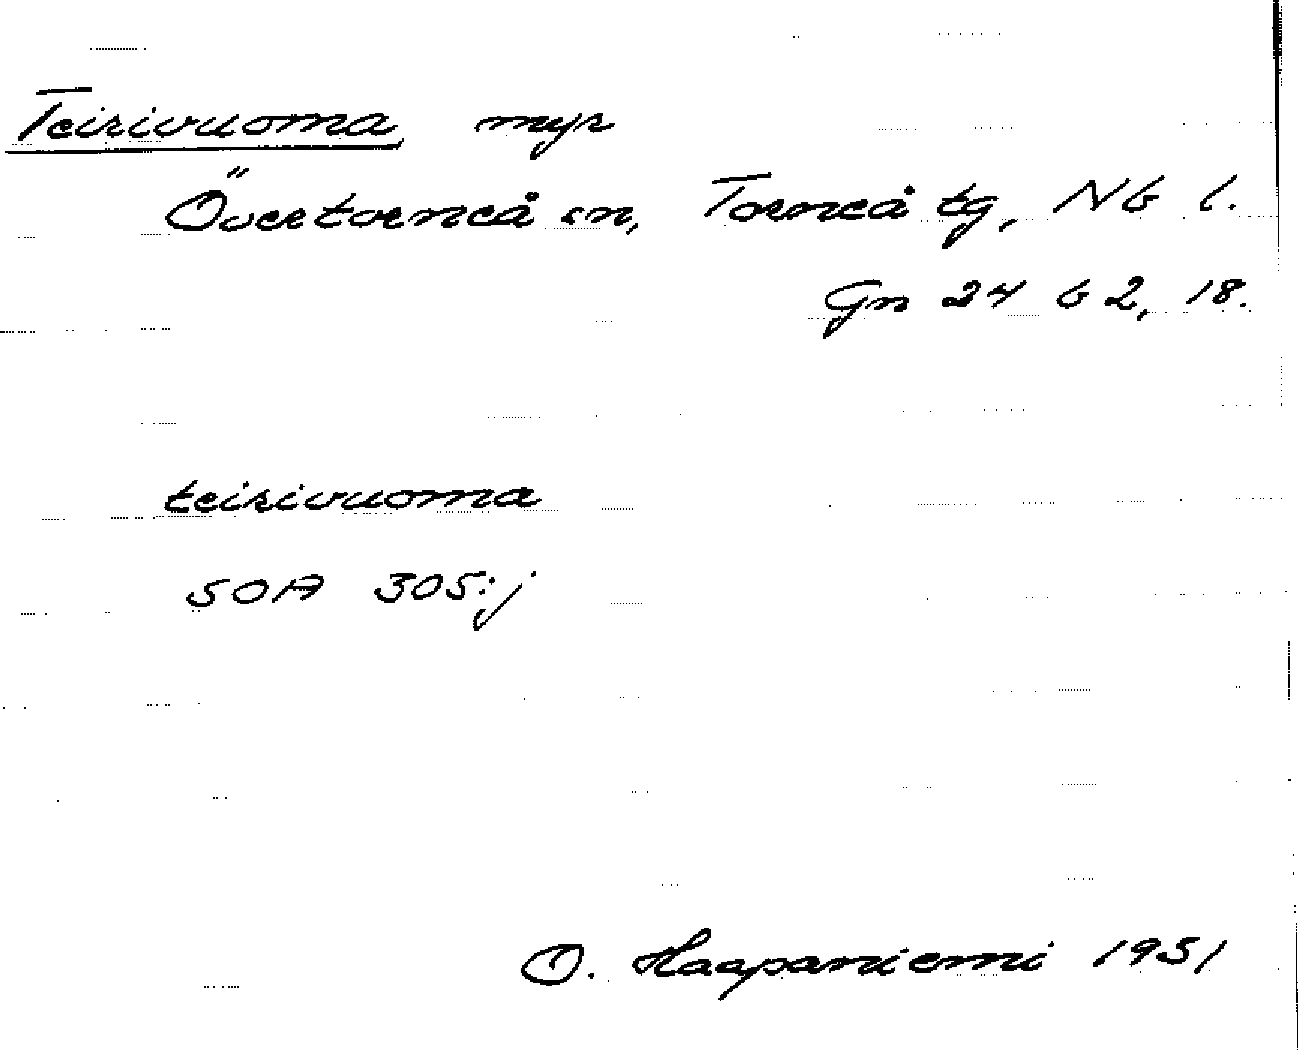 Teirivuoma, myr
Övertorneå sn, Torneå tg, Nb l.
Gn 24 b 2, 18.
teirivuoma
SOA 305:j
O. Haapaniemi 1951